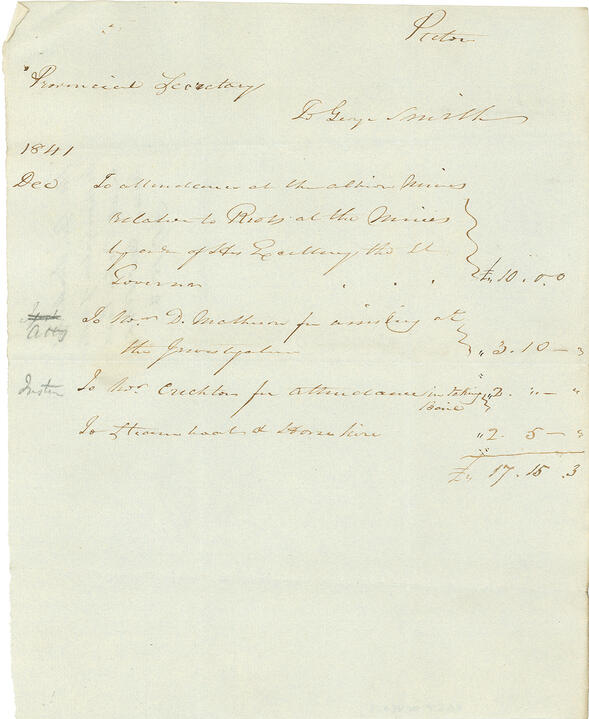 Pictou
Provincial Secretary
To George Smith
1841
Dec To attendance at the Albion Mines
relative to Riots at the Mines
by order of His Excellency the Lt
Governor £10.0.0
Atty To Mr D. Matheson for assisting at
the Investigation " 3.10 – 3
Justice To Mr Crichton for attendance in taking " 2. " – "
Bail
To Steamboats & Horse hire " 2 5 – "
£ 17.15.3